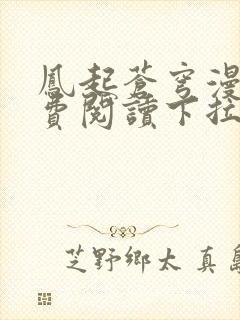 鳳起蒼穹漫
費閱讀下拉
芝野鄉太 真島